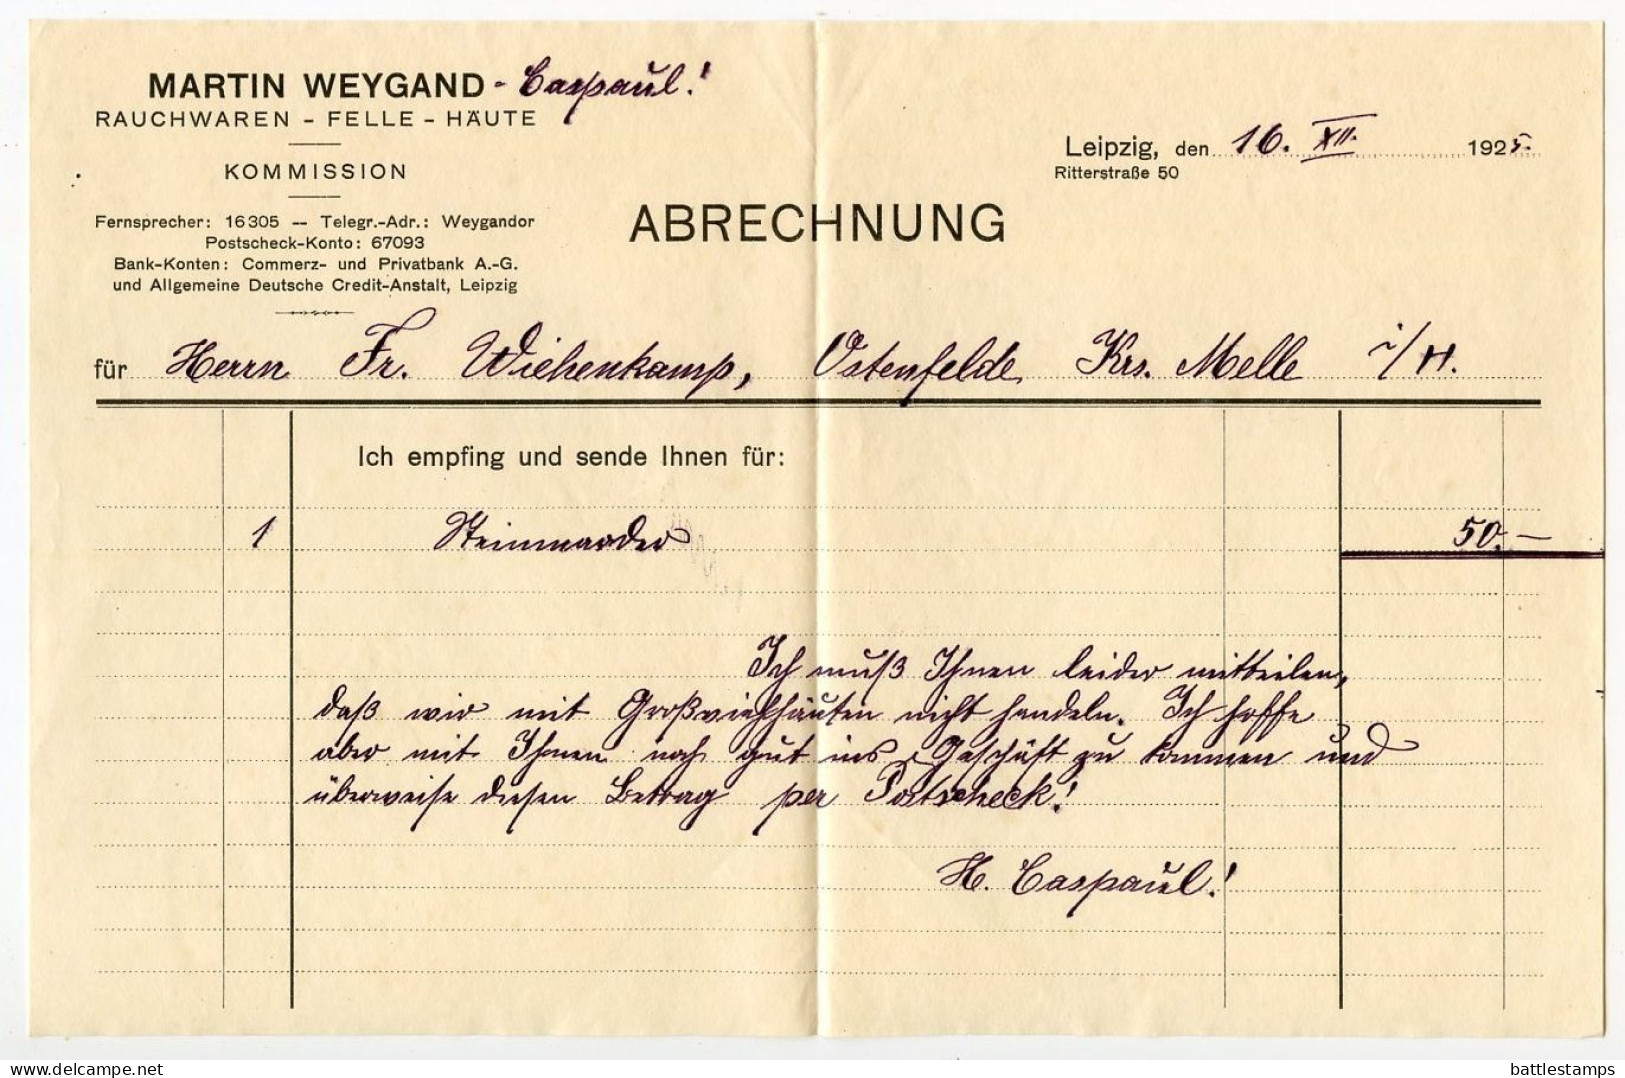 MARTIN WEYGAND - Caspaul!
RAUCHWAREN - FELLE - HÄUTE
KOMMISSION
Fernsprecher: 16305 -- Telegr.-Adr.: Weygandor
Postscheck-Konto: 67093
Bank-Konten: Commerz- und Privatbank A.-G.
und Allgemeine Deutsche Credit-Anstalt, Leipzig
Leipzig, den 16. XII. 1925.
Ritterstraße 50
ABRECHNUNG
für Herrn Fr. Wiehenkamp, Ostenfelde Krs. Melle i/H.
Ich empfing und sende Ihnen für:
1 Steinmarder 50.—
Ich muß Ihnen leider mitteilen,
daß wir mit Großviehhäuten nicht handeln. Ich hoffe
aber mit Ihnen noch gut ins Geschäft zu kommen und
überweise diesen Betrag per Postscheck!
H. Caspaul!
delcampe.net
battlestamps